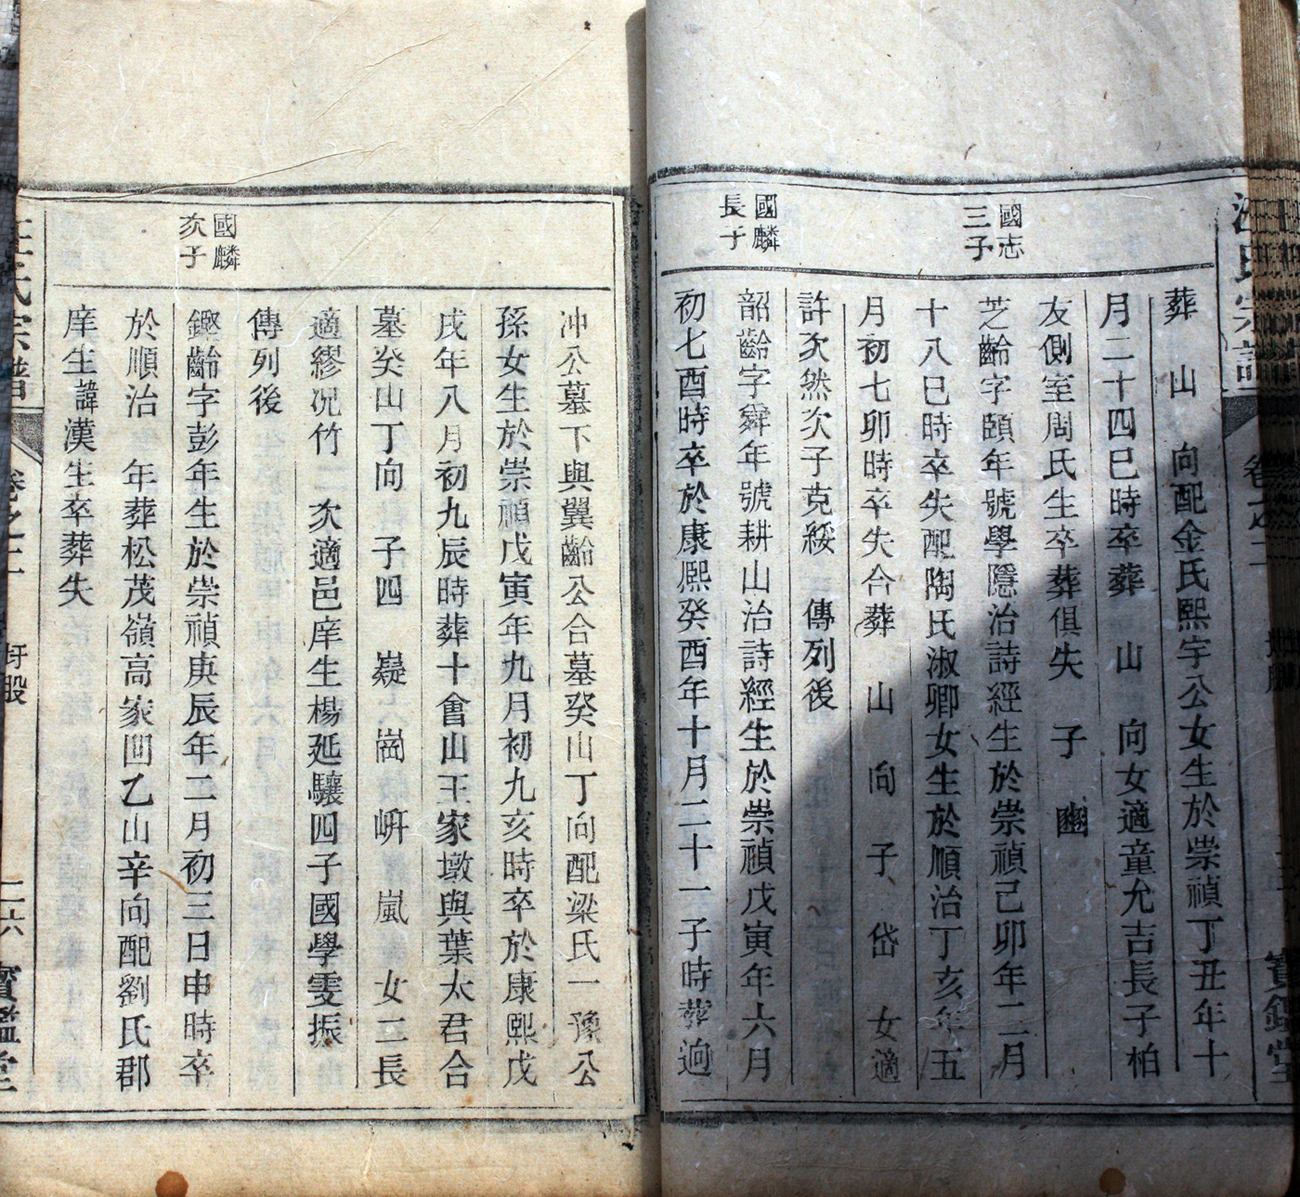 葬 山 向配金氏熙宇公女生於崇禎丁丑年十
月二十四巳時卒葬 山 向女適童允吉長子柏
友側室周氏生卒葬俱失 子 豳
國志
三子
芝齡字頤年號學隱治詩經生於崇禎己卯年二月
十八巳時卒失配陶氏淑卿女生於順治丁亥年五
月初七卯時卒失合葬 山 向 子 岱 女適
許次然次子克綏 傳列後
國麟
長子
韶齡字舜年號耕山治詩經生於崇禎戊寅年六月
初七酉時卒於康熙癸酉年十月二十一子時葬逈
冲公墓下與翼齡公合墓癸山丁向配梁氏一豫公
孫女生於崇禎戊寅年九月初九亥時卒於康熙戊
戌年八月初九辰時葬十會山王家墩與葉太君合
墓癸山丁向 子四 嶷 崗 岍 嵐 女二長
適繆況竹 二 次適邑庠生楊延驤四子國學雯振
傳列後
國麟
次子
鏗齡字彭年生於崇禎庚辰年二月初三日申時卒
於順治 年葬松茂嶺高家凹乙山辛向配劉氏郡
庠生諱漢生卒葬失
汪氏宗譜
卷之二
圩股
二六
寶鑑堂